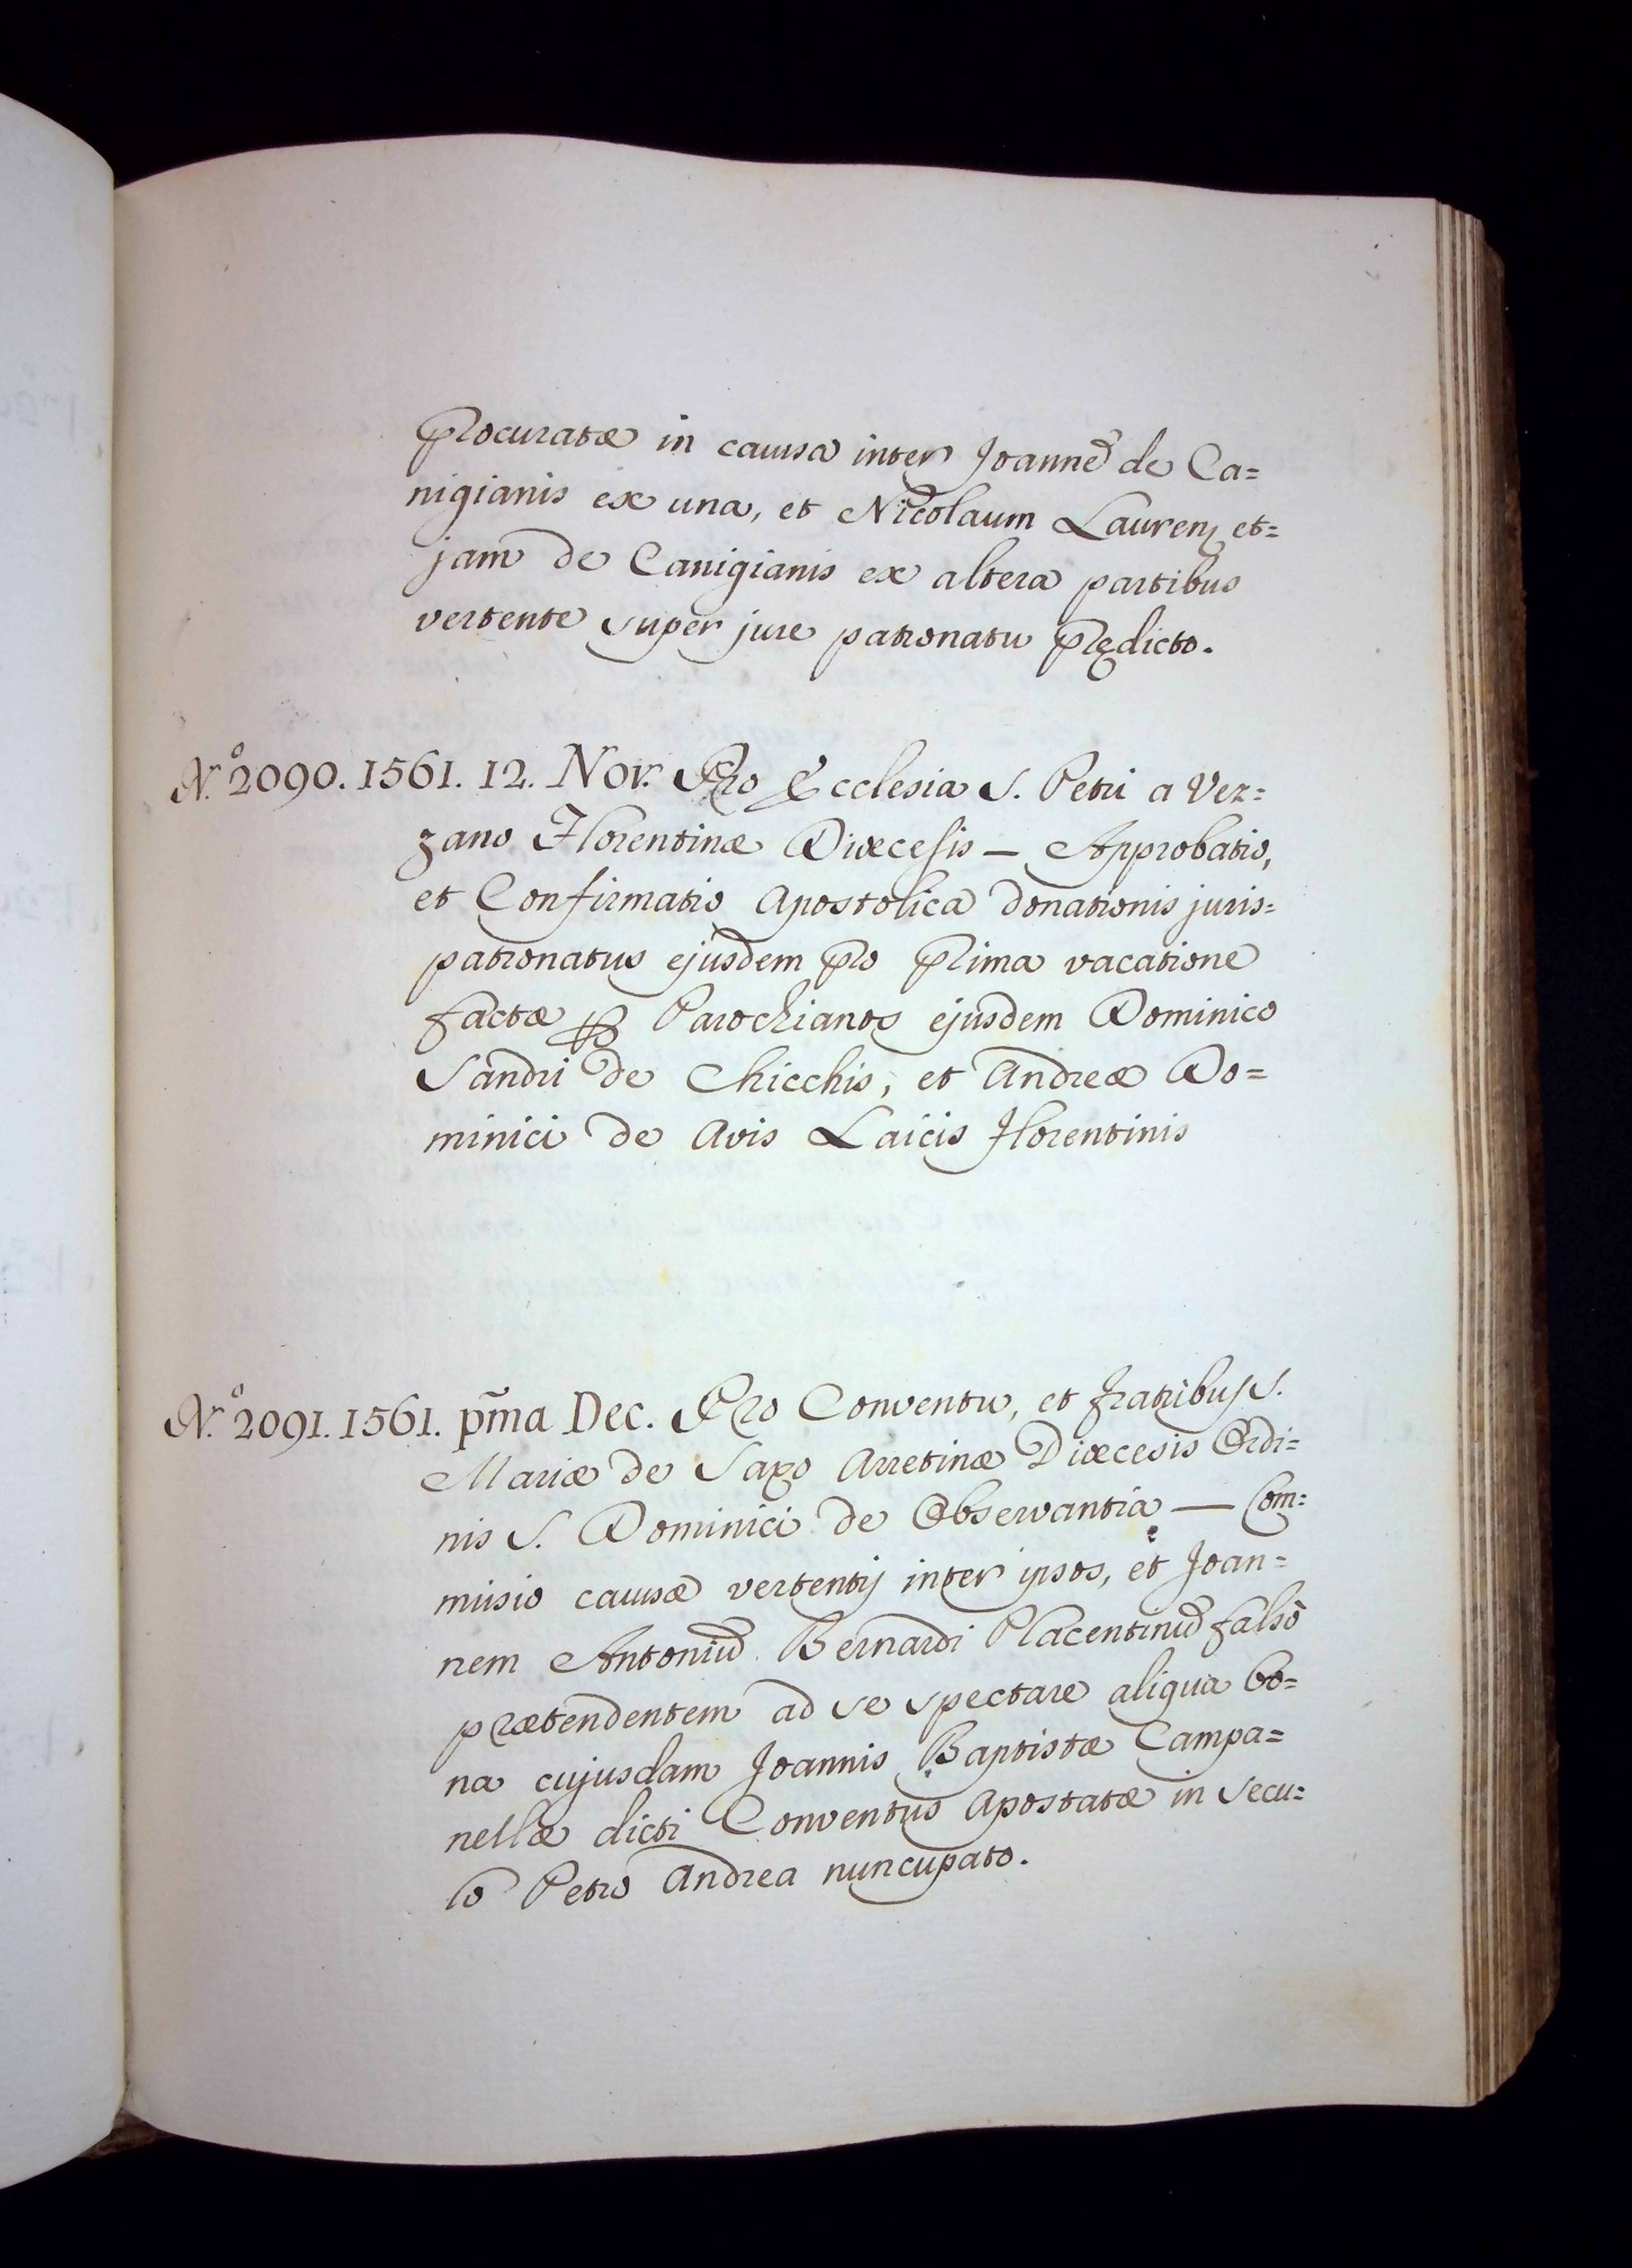 procuratæ in causa inter Joannē de Ca=
nigianis ex una, et Nicolaum Laurenz et=
jam de Canigianis ex altera partibus
vertente super jure patronatu prędicto.
N.º 2090. 1561. 12. Nov. Pro Ecclesia S. Petri a Ver=
zano Florentinæ Diœcesis — Approbatio,
et Confirmatio Apostolica donationis juris=
patronatus ejusdem pro prima vacatione
factæ ꝑ Parochianos ejusdem Dominico
Sandri de Chicchis, et Andreæ Do=
minici de Avis Laicis Florentinis
N.º 2091. 1561. pm̃a Dec. Pro Conventu, et fratribus S.
Mariæ de Saxo Arretinæ Diœcesis Ordi=
nis S. Dominici de Observantia — Com=
missio causæ vertentis inter ipsos, et Joan=
nem Antoniū Bernardi Placentinū falsò
prætendentem ad se spectare aliqua bo=
na cujusdam Joannis Baptistæ Campa=
nellæ dicti Conventus Apostatæ in secu=
lo Petro Andrea nuncupato.